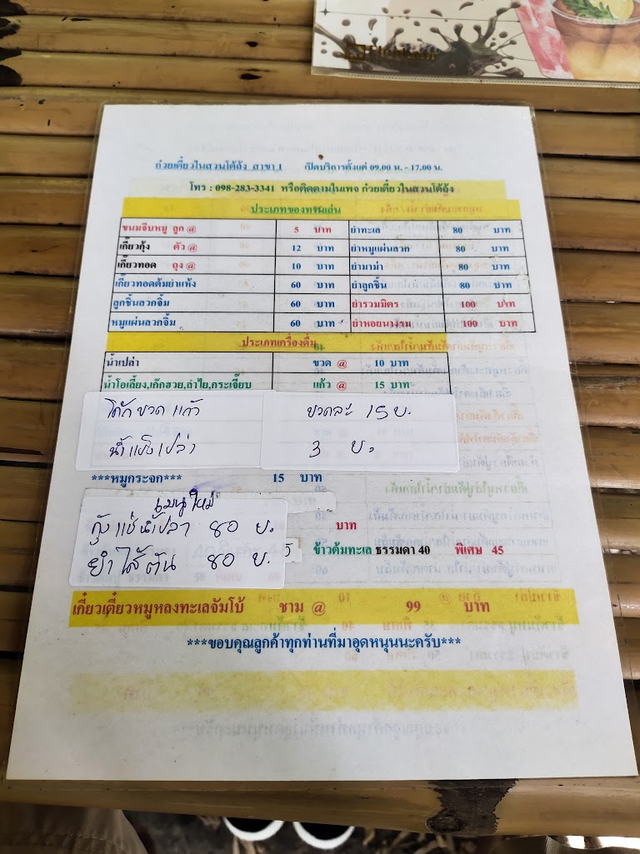 ก๋วยเตี๋ยวในสวนโต้ล้ง สาขา 1 เปิดบริการตั้งแต่ 09.00 น. - 17.00 น.
โทร : 098-283-3341 หรือติดตามในเพจ ก๋วยเตี๋ยวในสวนโต้ล้ง
ประเภทของทานเล่น
ขนมจีบหมู ลูก @ 5 บาท ยำทะเล 80 บาท
เกี๊ยวกุ้ง ตัว @ 12 บาท ยำหมูแผ่นลวก 80 บาท
เกี๊ยวทอด ถุง @ 10 บาท ยำมาม่า 80 บาท
เกี๊ยวทอดต้มยำแห้ง 60 บาท ยำลูกชิ้น 80 บาท
ลูกชิ้นลวกจิ้ม 60 บาท ยำรวมมิตร 100 บาท
หมูแผ่นลวกจิ้ม 60 บาท ยำหอยนางรม 100 บาท
ประเภทเครื่องดื่ม
น้ำเปล่า ขวด @ 10 บาท
น้ำโอเลี้ยง,เก๊กฮวย,ลำไย,กระเจี๊ยบ แก้ว @ 15 บาท
โค้กขวดแก้ว ขวดละ 15 บ.
น้ำแข็งเปล่า 3 บ.
***หมูกระจก*** 15 บาท
เมนูใหม่
กุ้งแช่น้ำปลา 80 บ.
บาท
ยำไส้ตัน 80 บ. 5 ข้าวต้มทะเล ธรรมดา 40 พิเศษ 45
เกี๋ยวเตี๋ยวหมูหลงทะเลจัมโบ้ ชาม @ 99 บาท
***ขอบคุณลูกค้าทุกท่านที่มาอุดหนุนนะครับ***